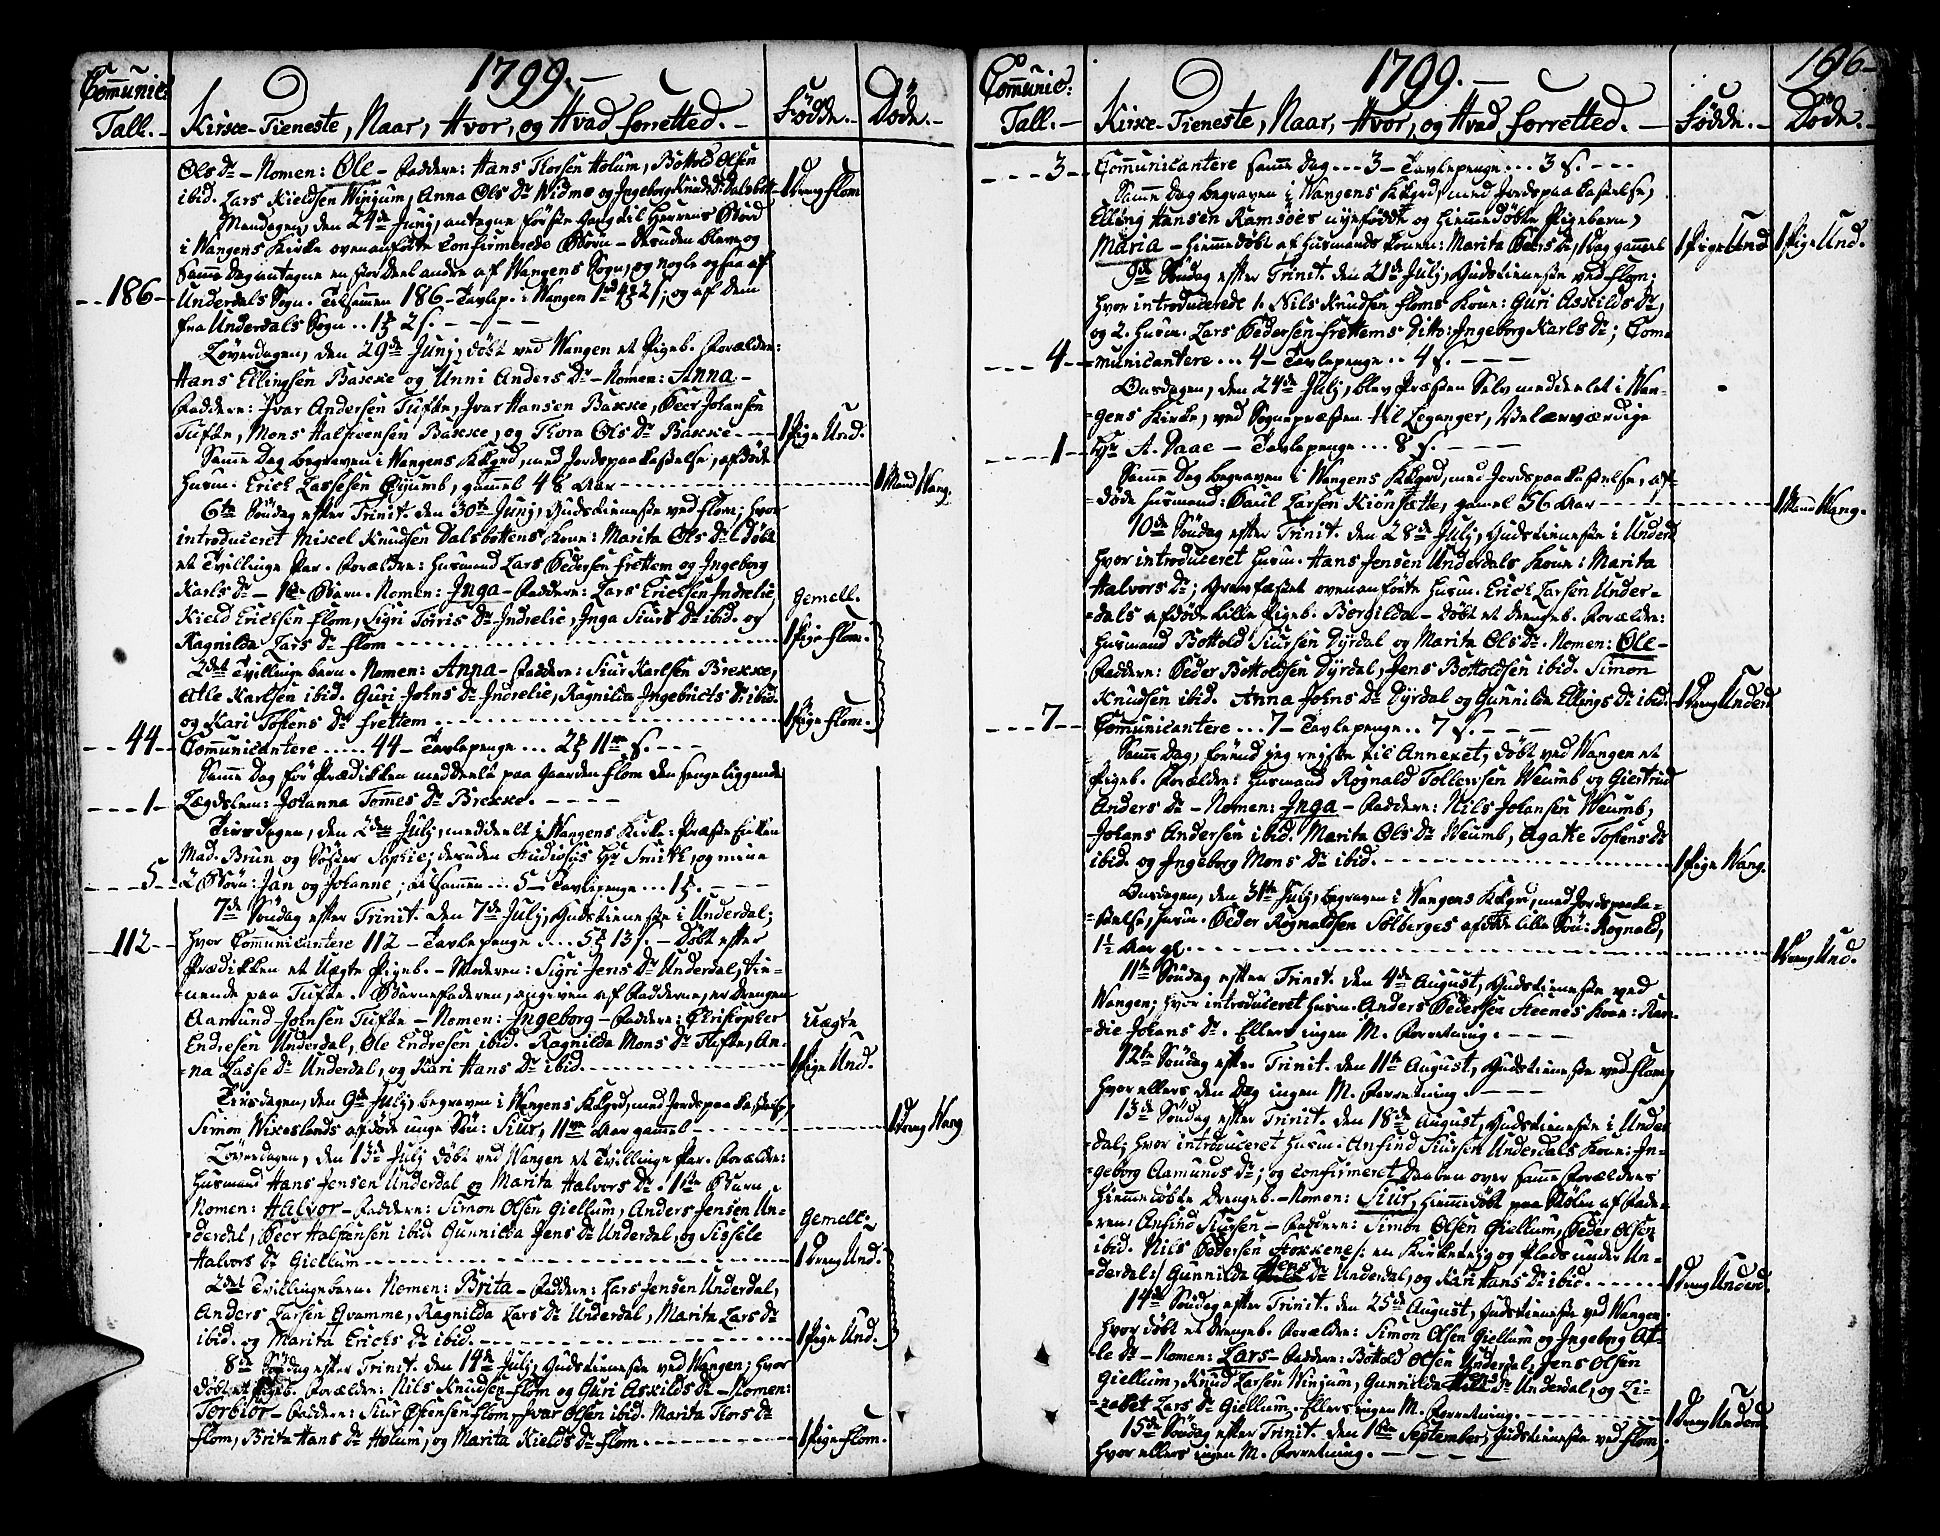 1799.
Com̄unic:
Tall.
Kirke-Tieneste, Naar, Hvor, og Hvad forretted.
Födde.
Döde.
Ols Dr – Nomen: Ole – Faddere: Hans Thorsen Holum, Bottold Olsen
ibid. Lars Kieldsen Winjum, Anna Ols Dr Widme og Ingeborg Knuds Dr Dalsbott
1 Dreng Flom
Mandagen, den 24de Junj, antagne förste Gang til Herrens Bord
i Wangens Kirke ovenanförte Confirmerede Börn – Desuden bleve og
Samme Dag antagne en stor Deel andre af Wangens Sogn, og nogle ogsaa af
186
Underdals Sogn. Tilsammen 186 – Tavlep. i Wangen 1rd 4ß 2s; og af dem
fra Underdals Sogn .. 1ß 2s.
Löverdagen, den 29de Junj, döbt ved Wangen et Pigeb. Forældre:
Hans Ellingsen Bakke og Unni Anders Dr – Nomen: Anna –
Faddere: Ivar Andersen Tufte, Ivar Hansen Bakke, Peer Johansen
Tufte, Mons Halsteensen Bakke, og Thora Ols Dr Bakke
1 Pige Und.
Samme Dag begraven i Wangens Kkgrd, med Jordspaakastelse, afdöde
Husm. Erich Lassesen Öyumb, gammel 48 Aar
1 Mand Wang.
6te Söndag efter Trinit. den 30te Junj, Gudstieneste ved Flom; hvor
introduceret Mikel Knudsen Dalsbottens Kone: Marita Ols Dr. Döbt
et Tvillinge Par. Forældre: Husmand Lars Pedersen Frettem og Ingeborg
Karls Dr – 1te Barn. Nomen: Inga – Faddere: Lars Erichsen Indrelie,
Gemell.
Kield Erichsen Flom, Sigri Torris Dr Indrelie, Inga Siurs Dr ibid. og
Ragnilda Lars Dr Flom
1 Pige Flom.
2det Tvillinge barn. Nomen: Anna – Faddere: Siur Karlsen Brekke,
Atle Karlsen ibid. Guri Johns Dr Indrelie, Ragnilda Ingebricts Dr ibid.
og Kari Tostens Dr Frettem
1 Pige Flom.
44
Com̄unicantere ..... 44 – Tavlepenge ... 2ß 11 s.
Samme Dag för Prædikken meddeelt paa Gaarden Flom den sengeliggende
1
Lægdslem: Johanna Tommes Dr Brekke.
Tirsdagen, den 2den Julj, meddeelt i Wangens Kirke: Præste Enken
Mad. Brun og Söster Sophie; desuden Studiosus Hr Smith, og mine
5
2 Börn: Jan og Johanne; tilsammen ... 5 – Tavlepenge ... 1ß.
7de Söndag efter Trinit. den 7de Julj, Gudstieneste i Underdal;
112
hvor Com̄unicantere 112 – Tavlepenge .... 5ß 13s. – Döbt efter
Prædikken et Uægte Pigeb. – Moderen: Sigri Jens Dr Underdal, tie-
nende paa Tufte. Barnefaderen, angiven af Fadderne, er Drengen
Aamund Johnsen Tufte – Nomen: Ingeborg – Faddere: Christopher
Uægte
Endresen Underdal, Ole Endresen ibid. Ragnilda Mons Dr Tufte, An-
na Lasse Dr Underdal, og Kari Hans Dr ibid.
1 Pige Und.
Tirsdagen, den 9de Julj, begraven i Wangens Kkgrd, med Jordspaakastelse,
Simon Wikeslands afdöde unge Sön: Siur, 11 Aar gammel
1 Dreng Wang
Löverdagen, den 13de Julj döbt ved Wangen et Tvillinge Par. Forældre:
Husmand Hans Jensen Underdal og Marita Halvors Dr. 1te Barn
Nomen: Halvor – Faddere: Simon Olsen Giellum, Anders Jensen Un-
Gemell:
derdal, Peer Halstensen ibid. Gunnilda Jens Dr Underdal, og Sissele
Halvors Dr Giellum
1 Dreng Und.
2det Tvillingebarn. Nomen: Brita – Faddere: Lars Jensen Underdal,
Anders Larsen Qvamme, Ragnilda Lars Dr Underdal, Marita Lars Dr
ibid. og Marita Erichs Dr ibid.
1 Pige Und.
8de Söndag efter Trinit. den 14de Julj, Gudstieneste ved Wangen; hvor
döbt et Pigeb. Forældre: Nils Knudsen Flom og Guri Askilds Dr – Nomen:
Torbiör – Faddere: Siur Östensen Flom, Ivar Olsen ibid. Marita Thors Dr
Flom, Brita Hans Dr Holum, og Marita Kields Dr Flom
1 Pige Flom.
1799.
166
Com̄unic:
Tall.
Kirke-Tieneste, Naar, Hvor, og Hvad forretted.
Födde.
Döde.
3
Com̄unicantere samme Dag ... 3 – Tavlepenge ... 3 s.
Samme Dag begraven i Wangens Kkgrd, med Jordspaakastelse,
Elling Hansen Ramsöes nyefödde og hiemmedöbte Pigebarn,
Maria – hiemmedöbt af Husmands Konen: Marita Peers Dr, 1 Dag gammel
1 Pige Und.
1 Pige Und.
9de Söndag efter Trinit. den 21de Julj, Gudstieneste ved Flom;
hvor introducerede 1. Nils Knudsen Floms Kone: Guri Askilds Dr,
og 2. Husm. Lars Pedersen Frettems Ditto: Ingeborg Karls Dr; Com-
4
municantere ... 4 – Tavlepenge .. 4 s.
Onsdagen, den 24de Julj, blev Præsten Selv meddeelet i Wan-
gens Kirke, ved Sognepræsten til Leganger, Velærværdige
1
Hr A. Daae – Tavlepenge ... 8 s.
Samme Dag begraven i Wangens Kkgrd, med Jordspaakastelse, af-
döde Husmand: Paul Larsen Kiönsætte, gamel 56 Aar
1 Mand Wang.
10de Söndag efter Trinit. den 28de Julj, Gudstieneste i Underd.
hvor introduceret Husm. Hans Jensen Underdals Kone: Marita
Halvors Dr; Gravfæstet ovenanförte Husm. Erich Larsen Under-
dals afdöde lille Pigeb. Borgilda – Döbt et Drengeb. Forældre:
Husmand Bottold Siursen Dyrdal og Marita Ols Dr. Nomen: Ole –
Faddere: Peder Bottoldsen Dyrdal, Jens Bottoldsen ibid. Simon
Knudsen ibid. Anna Johns Dr Dyrdal og Gunnilda Ellings Dr ibid.
1 Dreng Underd
7
Com̄unicantere ... 7 – Tavlepenge .. 7 s.
Samme Dag, förend jeg reiste til Annexet, döbt ved Wangen et
Pigeb. Forældre: Husmand Rognald Tollewsen Weumb og Giertrud
Anders Dr – Nomen: Inga – Faddere: Nils Johansen Weumb,
Johans Andersen ibid. Marita Ols Dr Weumb, Agathe Tostens Dr
ibid. og Ingeborg Mons Dr ibid.
1 Pige Wang.
Onsdagen, den 31te Julj, begraven i Wangens Kkgrd, med Jordspaaka-
stelse, Husm. Peder Rognaldsen Solberges afdöde lille Sön: Rognald,
1½ Aar gl.
1 Dreng Und.
11te Söndag efter Trinit. den 4de August, Gudstieneste ved
Wangen; hvor introduceret Husm. Anders Pedersen Steenes Kone: Ran-
die Johans Dr. Ellers ingen M. Forretning.
12te Söndag efter Trinit. den 11te August, Gudstieneste ved Flom,
hvor ellers den Dag ingen M. Forretning.
13de Söndag efter Trinit. den 18de August, Gudstieneste i Under-
dal; hvor introduceret Husm. Anfind Siursen Underdals Kone: In-
geborg Aamunds Dr; og confirmeret Daaben over samme Forældres
hiemmedöbte Drengeb. – Nomen: Siur, hiemmedöbt paa Stölen af Fade-
ren: Anfind Siursen – Faddere: Simon Olsen Giellum, Peder Olsen
ibid. Nils Pedersen Stokkene /: en Kirkeeyg og Plads under Un-
derdal:/ Gunnilda Jens Dr Underdal, og Kari Hans Dr ibid.
1 Dreng Underd.
14de Söndag efter Trinit. den 25de August, Gudstieneste ved Wangen
hvor döbt et Drengeb. Forældre: Simon Olsen Giellum og Ingeborg At-
le Dr – Nomen: Lars – Faddere: Bottold Olsen Underdal, Jens Olsen
Giellum, Knud Larsen Winjum, Gunnilda Nils Dr Underdal, og Li-
zabet Lars Dr Giellum. Ellers ingen M. Forretning.
1 Dreng Underd
15de Söndag efter Trinit. den 1ste September, Gudstieneste ved Flom,
hvor ellers ingen M. Forretning.